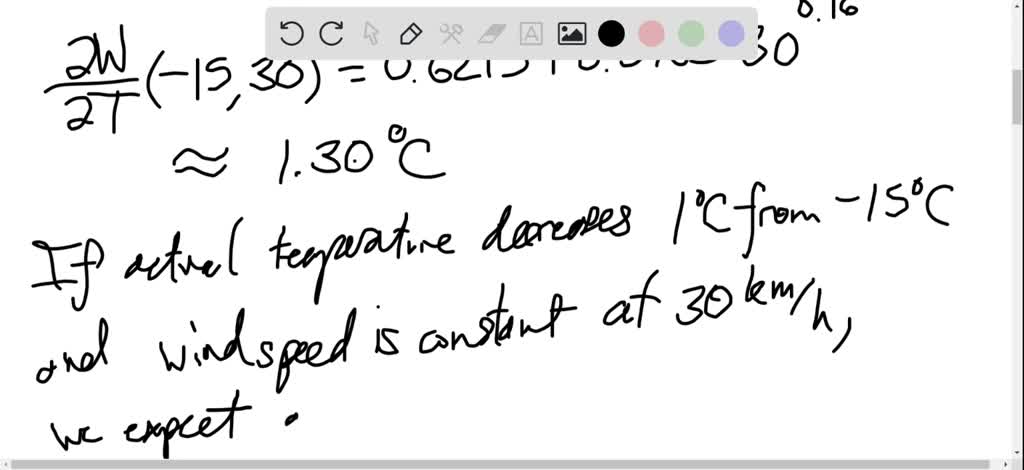 ∂W/∂T (-15,30) = 0.6215 + 0. 30^0.16
≈ 1.30°C
If actual temperature decreases 1°C from -15°C
and windspeed is constant at 30 km/h,
we expect